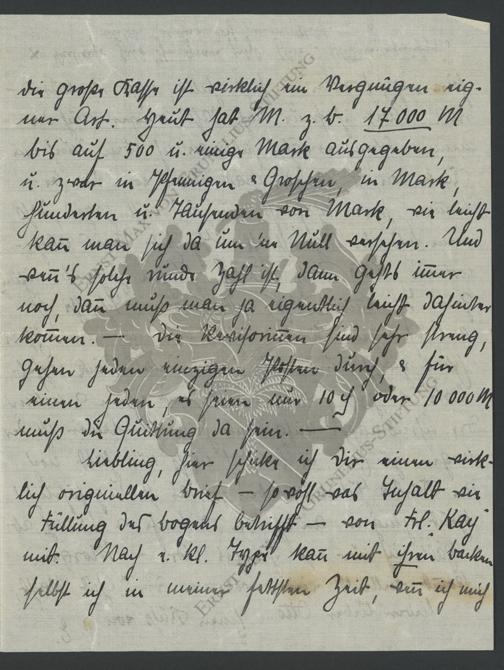 die große Kasse ist wirklich ein Vergnügen eig-
ner Art. Heut hat M. z. b. 17 000 M
bis auf 500 u. einige Mark ausgegeben,
u. zwar in Pfennigen & Groschen, in Mark,
Hunderten u. Tausenden von Mark, wie leicht
kan̄ man sich da um 'ne Null versehen. Und
wen̄'s solche runde Zahl ist, dann geht's im̄er
noch, dan̄ muß man ja eigentlich leicht dahinter
kom̄en. — Die Revisorinnen sind sehr streng,
gehen jeden einzigen Posten durch, & für
einen jeden, es seien nur 10 ₰ oder 10 000 M
muß die Quittung da sein. —
Liebling, hier schicke ich Dir einen wirk-
lich originellen Brief — sowohl was Inhalt wie
Füllung des bogens betrifft — von Frl. Kay
mit. Nach e. kl. Type kan̄ mit ihren backen
selbst ich in meiner fettsten Zeit, wen̄ ich mich
ERNST MAX VON GRUNELIUS-STIFTUNG